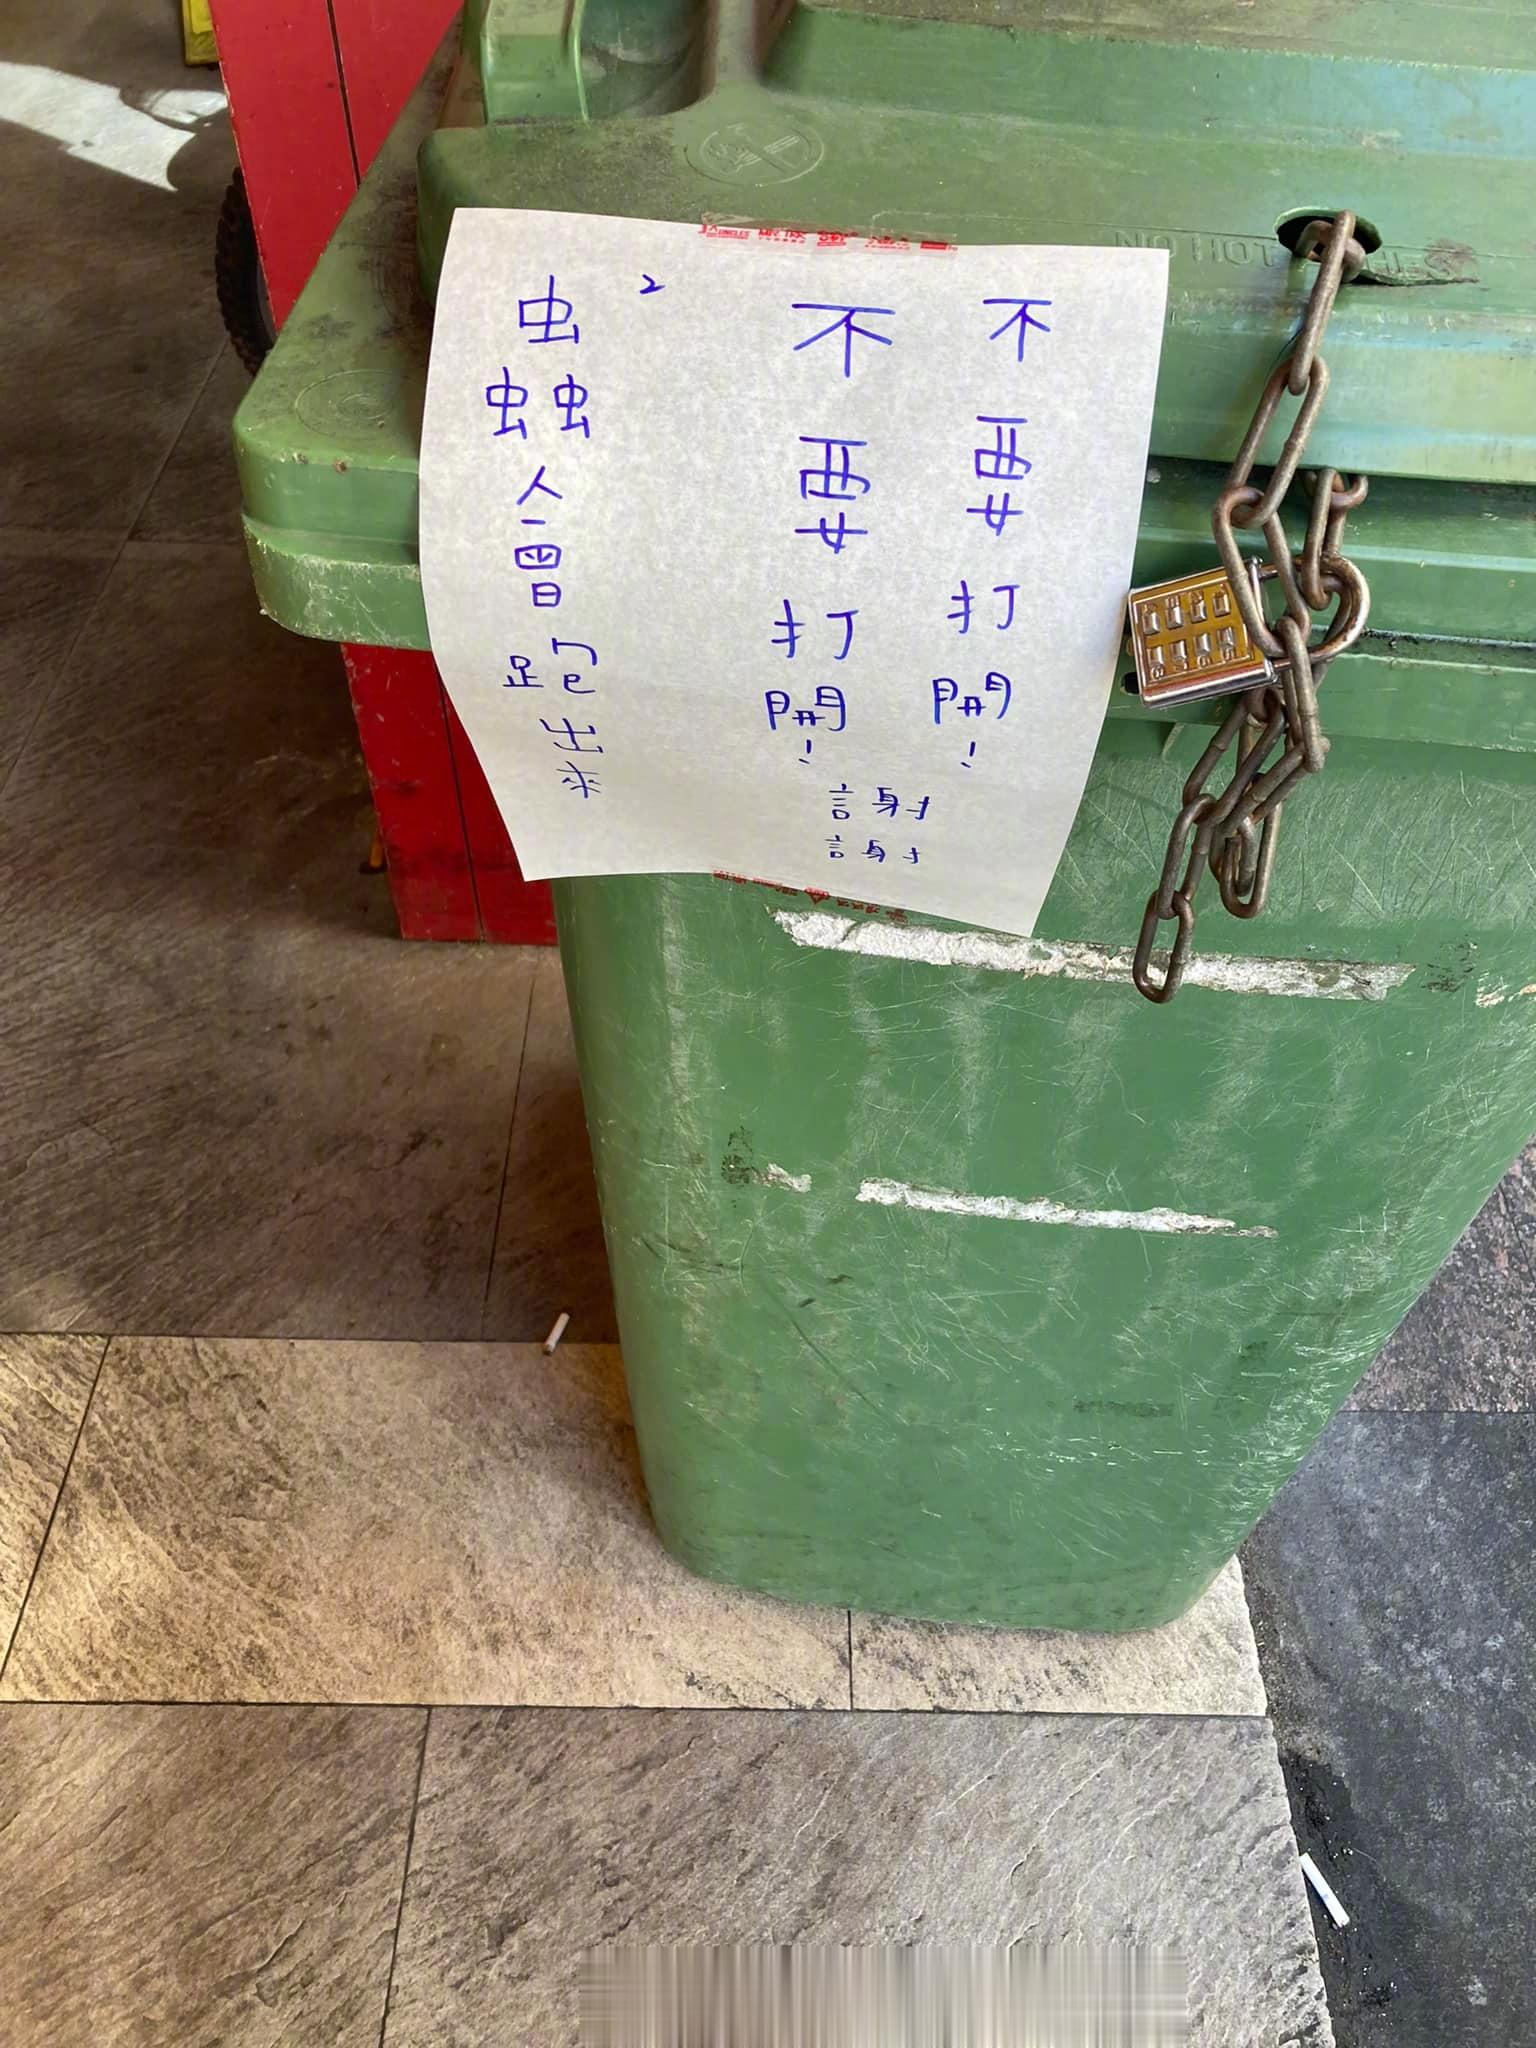 不要打開！
不要打開！
謝謝
蟲²會跑出來
NO HOT